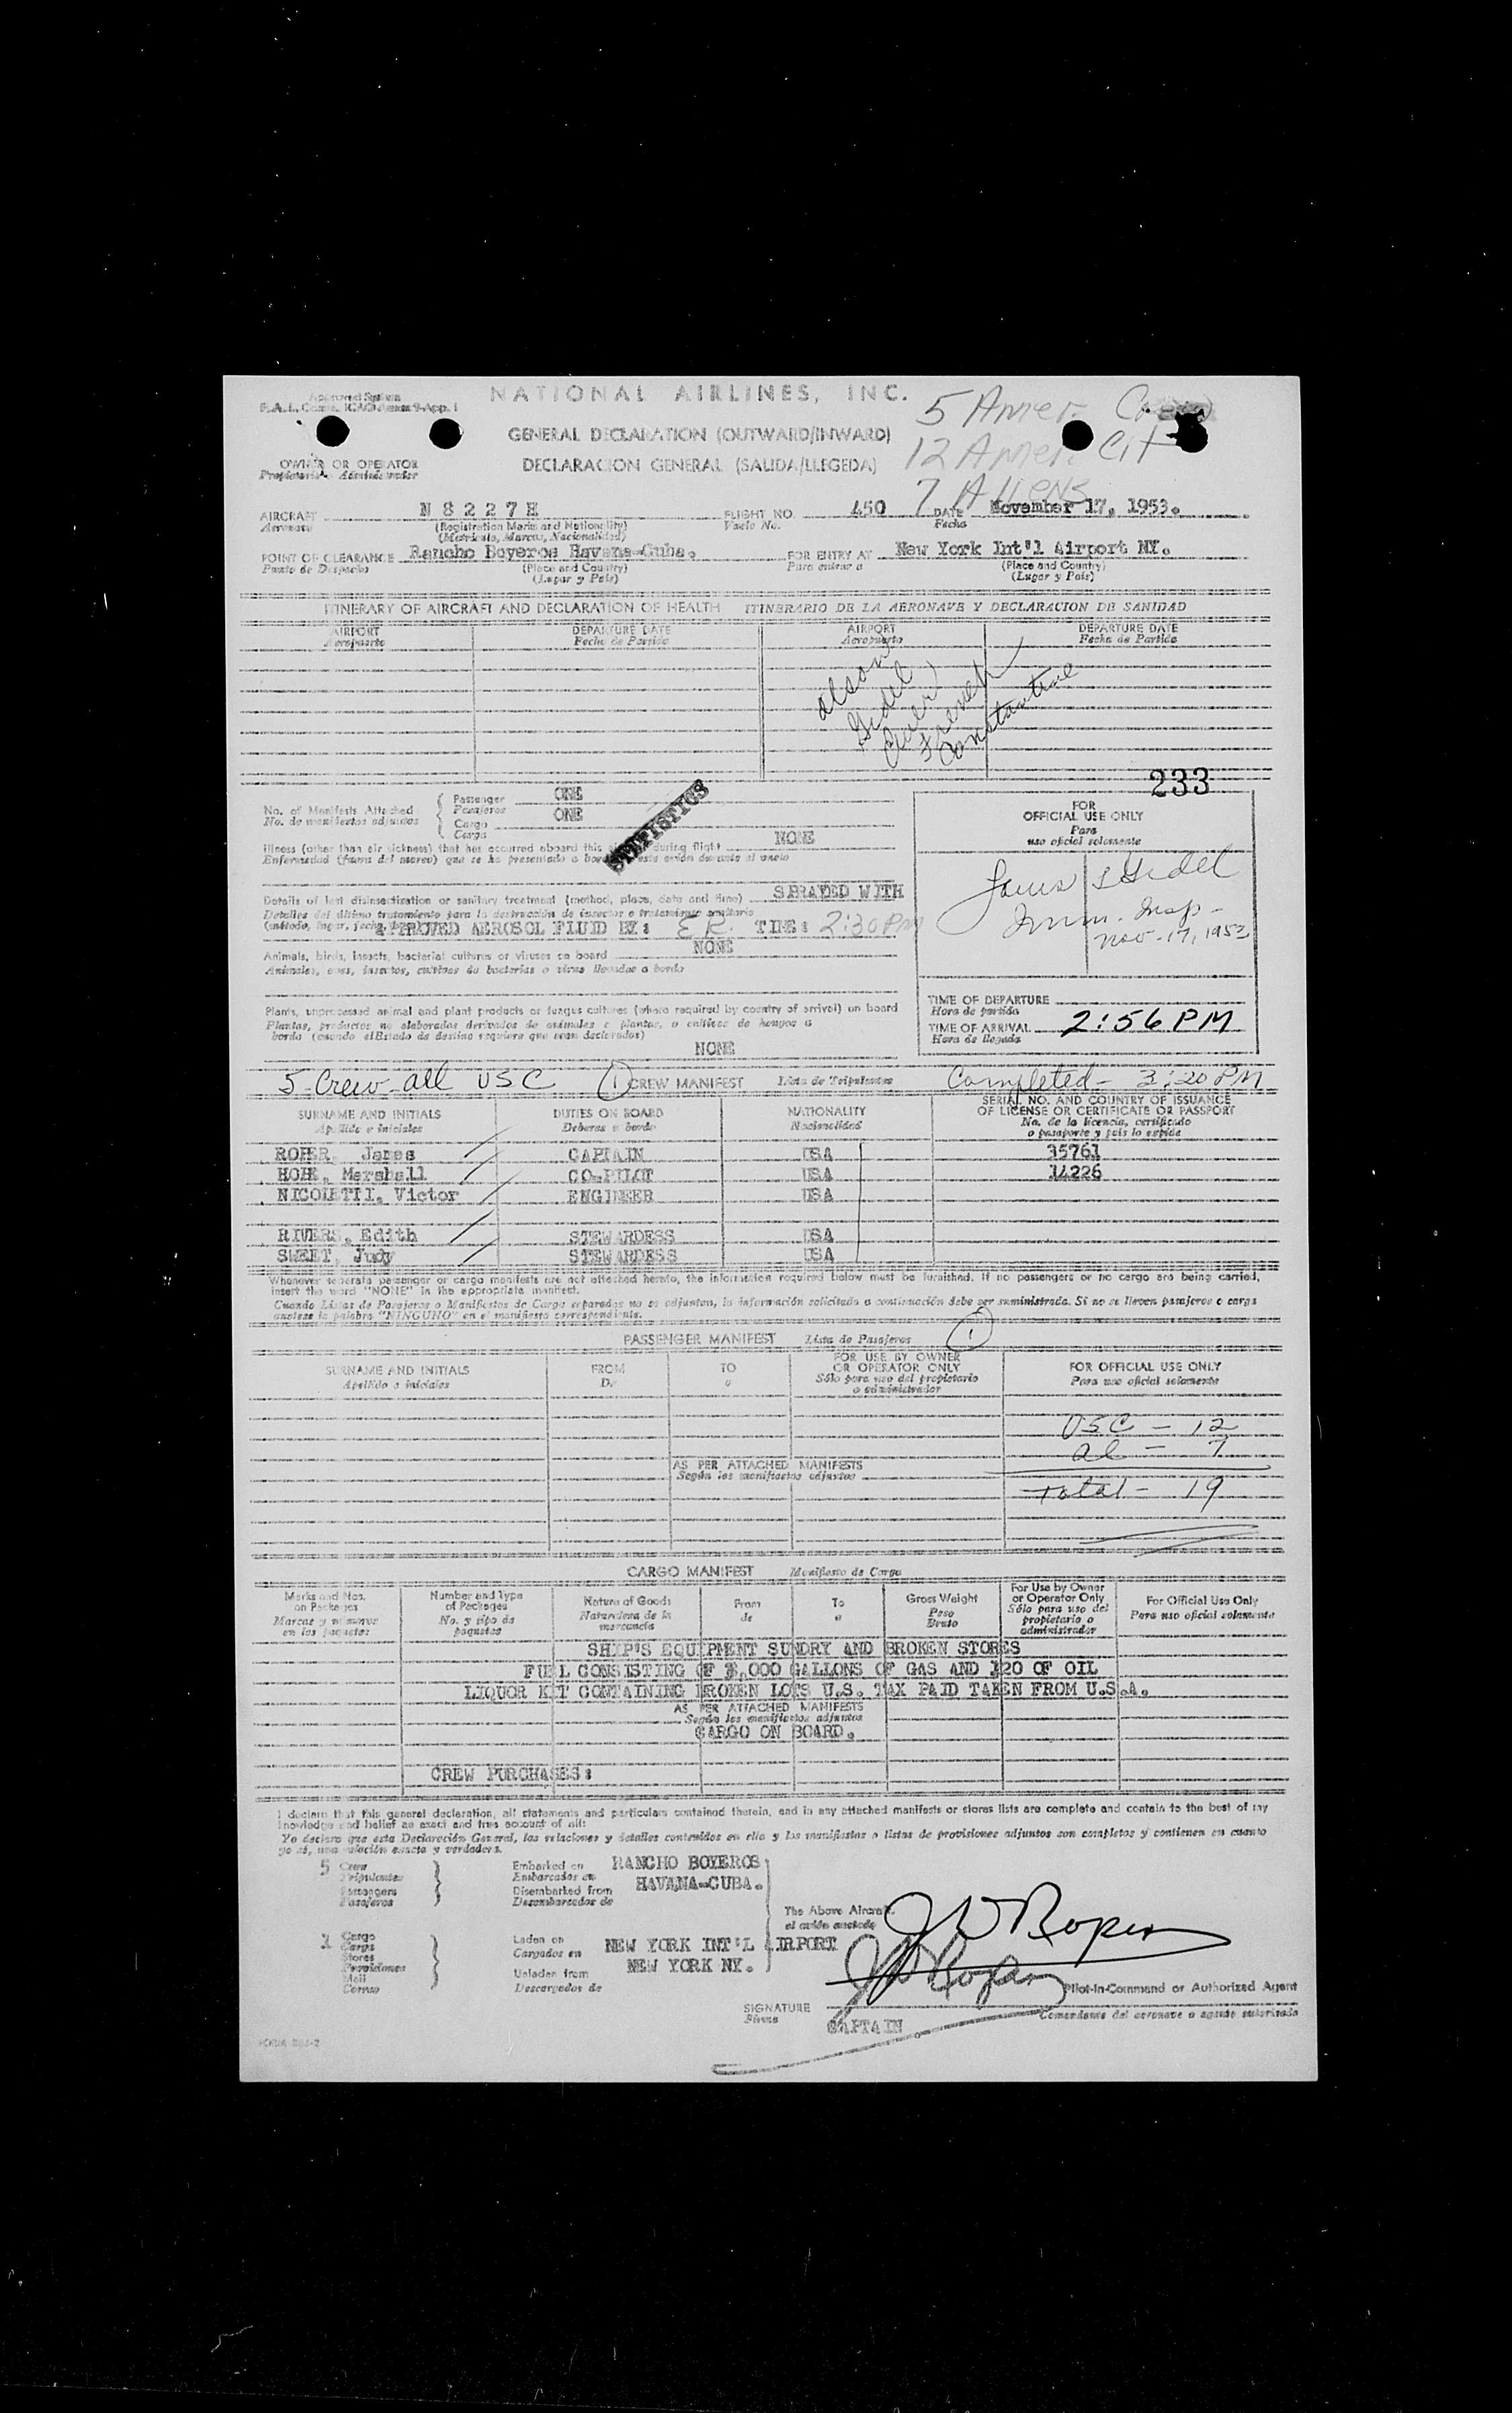 Approved System
F.A.L. Comm. ICAO Annex 9-App. 1
NATIONAL AIRLINES, INC.
5 Amer. Crew
GENERAL DECLARATION (OUTWARD/INWARD)
12 Amer. Cit
OWNER OR OPERATOR
Propietario o Administrador
DECLARACION GENERAL (SALIDA/LLEGEDA)
7 Aliens
AIRCRAFT N 8 2 2 7 H FLIGHT NO. 450 DATE November 17, 1953.
Aeronave (Registration Marks and Nationality) Vuelo No. Fecha
(Matricula, Marcas, Nacionalidad)
POINT OF CLEARANCE Rancho Boyeros Havana-Cuba. FOR ENTRY AT New York Int'l Airport NY.
Punto de Despacho (Place and Country) Para entrar a (Place and Country)
(Lugar y País) (Lugar y País)
ITINERARY OF AIRCRAFT AND DECLARATION OF HEALTH ITINERARIO DE LA AERONAVE Y DECLARACION DE SANIDAD
AIRPORT DEPARTURE DATE AIRPORT DEPARTURE DATE
Aeropuerto Fecha de Partida Aeropuerto Fecha de Partida
Gidel
French
Constantine
233
No. of Manifests Attached Passenger ONE
No. de manifiestos adjuntos Pasajeros
Cargo ONE
Carga
STATISTICS
Illness (other than air sickness) that has occurred aboard this during flight NONE
Enfermedad (fuera del mareo) que se ha presentado a bordo este avión durante el vuelo
FOR
OFFICIAL USE ONLY
Para
uso oficial solamente
Louis L Gidel
Imm. Insp-
Nov-17, 1953
Details of last disinsectization or sanitary treatment (method, place, date and time) SPRAYED WITH
Detalles del último tratamiento para la destrucción de insectos o tratamiento sanitario
(método, lugar, fecha
APPROVED AEROSOL FLUID BY: E R. TIME: 2:30 PM
Animals, birds, insects, bacterial cultures or viruses on board NONE
Animales, aves, insectos, cultivos de bacterias o virus llevados a bordo
Plants, unprocessed animal and plant products or fungus cultures (where required by country of arrival) on board
Plantas, productos no elaborados derivados de animales o plantas, o cultivos de hongos a
bordo (cuando el Estado de destino requiera que sean declarados)
NONE
TIME OF DEPARTURE
Hora de partida
TIME OF ARRIVAL 2:56 PM
Hora de llegada
5-Crew-all USC (1) CREW MANIFEST Lista de Tripulantes Completed- 3:20 PM
SURNAME AND INITIALS DUTIES ON BOARD NATIONALITY SERIAL NO. AND COUNTRY OF ISSUANCE
OF LICENSE OR CERTIFICATE OR PASSPORT
Apellido e iniciales Deberes a bordo Nacionalidad No. de la licencia, certificado
o pasaporte y país lo expide
ROPER, James CAPTAIN USA 35761
HOHE, Marshall CO-PILOT USA 14226
NICOLETTI, Victor ENGINEER USA
RIVERS, Edith STEWARDESS USA
SWEET, Judy STEWARDESS USA
Whenever separate passenger or cargo manifests are not attached hereto, the information required below must be furnished. If no passengers or no cargo are being carried,
insert the word "NONE" in the appropriate manifest.
Cuando Listas de Pasajeros o Manifiestos de Carga separados no se adjuntan, la información solicitada a continuación debe ser suministrada. Si no se llevan pasajeros o carga
anótese la palabra "NINGUNO" en el manifiesto correspondiente.
PASSENGER MANIFEST Lista de Pasajeros (1)
SURNAME AND INITIALS FROM TO FOR USE BY OWNER
OR OPERATOR ONLY FOR OFFICIAL USE ONLY
Apellido o iniciales De a Sólo para uso del propietario
o administrador Para uso oficial solamente
USC - 12
al - 7
AS PER ATTACHED MANIFESTS
Según los manifiestos adjuntos
Total - 19
CARGO MANIFEST Manifiesto de Carga
Marks and Nos.
on Packages
Marcas y número
en los paquetes
Number and Type
of Packages
No. y tipo de
paquetes
Nature of Goods
Naturaleza de la
mercancía
From
de
To
a
Gross Weight
Peso
Bruto
For Use by Owner
or Operator Only
Sólo para uso del
propietario o
administrador
For Official Use Only
Para uso oficial solamente
SHIP'S EQUIPMENT SUNDRY AND BROKEN STORES
FUEL CONSISTING OF 3,000 GALLONS OF GAS AND 120 OF OIL
LIQUOR KIT CONTAINING BROKEN LOTS U.S. TAX PAID TAKEN FROM U.S.A.
AS PER ATTACHED MANIFESTS
Según los manifiestos adjuntos
CARGO ON BOARD.
CREW PURCHASES:
I declare that this general declaration, all statements and particulars contained therein, and in any attached manifests or stores lists are complete and contain to the best of my
knowledge and belief an exact and true account of all:
Yo declaro que esta Declaración General, las relaciones y detalles contenidos en ella y los manifiestos o listas de provisiones adjuntos son completos y contienen en cuanto
yo sé, una relación exacta y verdadera.
5 Crew
Tripulantes
Passengers
Pasajeros
Embarked on RANCHO BOYEROS
Embarcados en HAVANA-CUBA.
Disembarked from
Desembarcados de
The Above Aircraft.
el avión anotado
J W Roper
1 Cargo
Carga
Stores
Provisiones
Mail
Correo
Laden on
Cargados en NEW YORK INT'L AIRPORT
Unladen from NEW YORK NY.
Descargados de
J W Roper
Pilot-in-Command or Authorized Agent
SIGNATURE
Firma CAPTAIN
Comandante del aeronave o agente autorizado